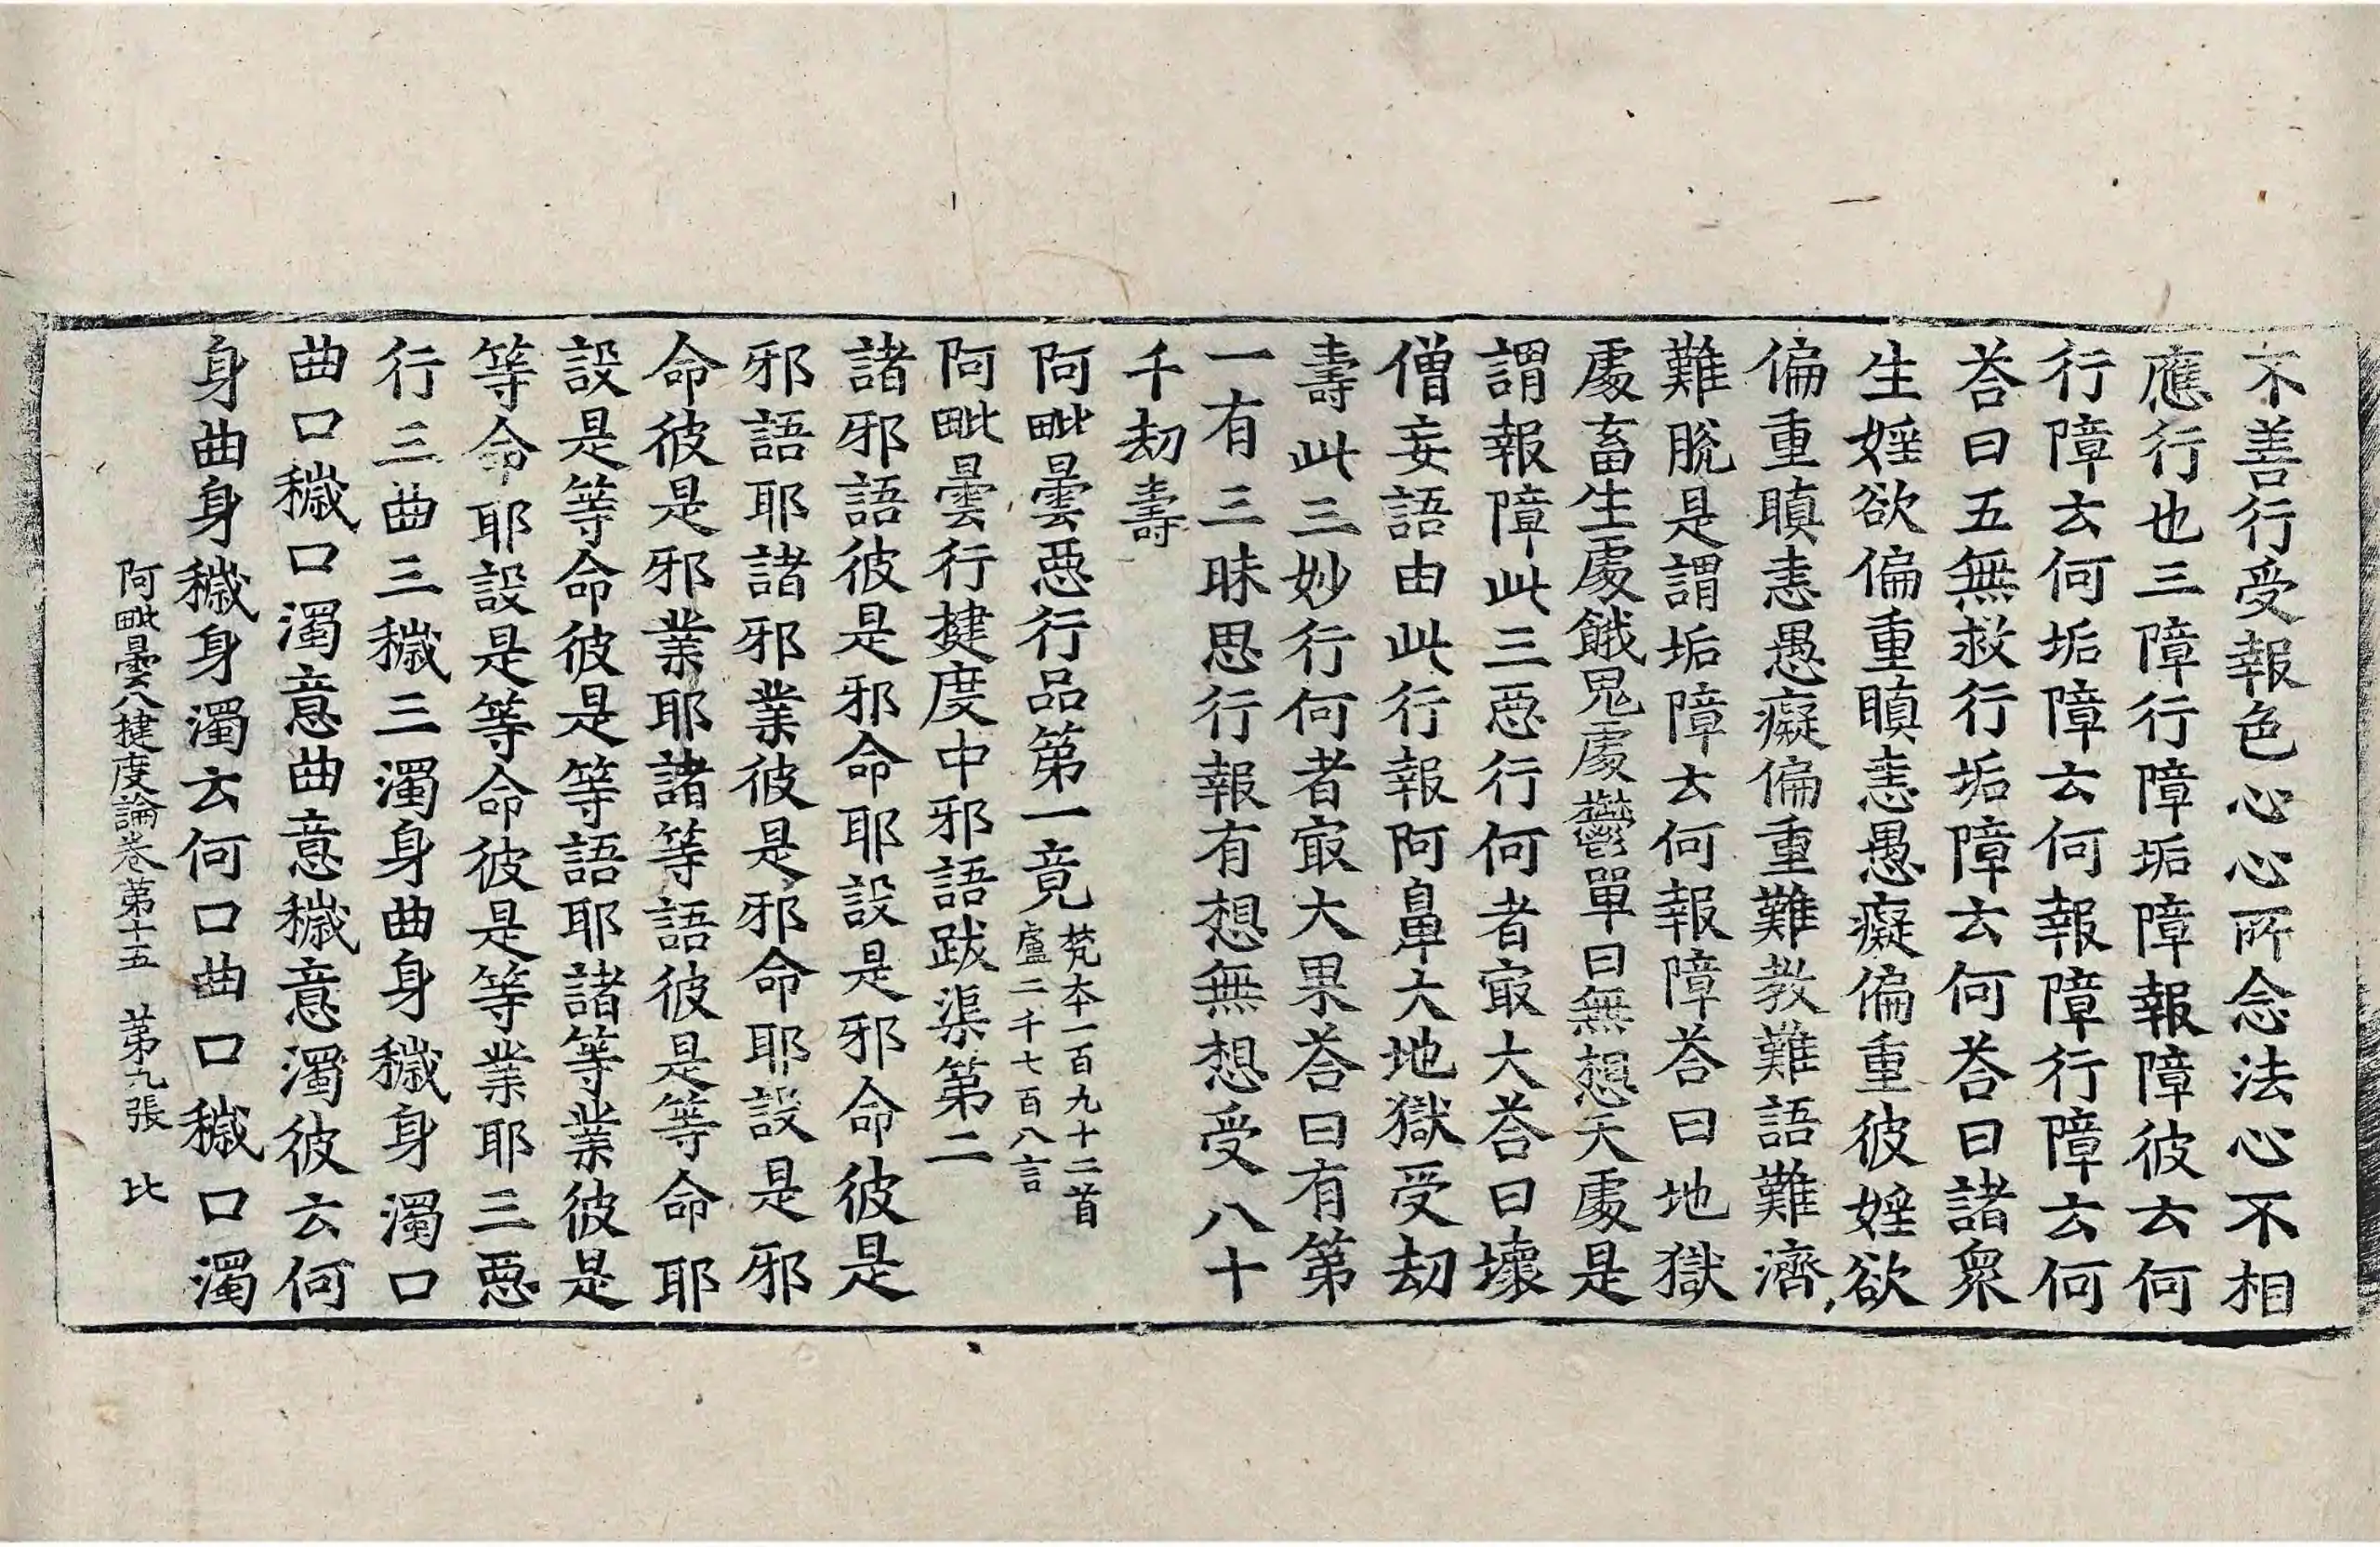 不善行受報色心心所念法心不相
應行也三障行障垢障報障彼云何
行障云何垢障云何報障行障云何
荅曰五無救行垢障云何荅曰諸衆
生婬欲偏重瞋恚愚癡偏重彼婬欲
偏重瞋恚愚癡偏重難教難語難濟
難脫是謂垢障云何報障荅曰地獄
處畜生處餓鬼處鬱單曰無想天處是
謂報障此三惡行何者冣大荅曰壞
僧妄語由此行報阿鼻大地獄受劫
壽此三妙行何者冣大果荅曰有第
一有三昧思行報有想無想受八十
千劫壽
阿毗曇惡行品第一竟梵本一百九十二首
盧二千七百八言
阿毗曇行揵度中邪語跋渠第二
諸邪語彼是邪命耶設是邪命彼是
邪語耶諸邪業彼是邪命耶設是邪
命彼是邪業耶諸等語彼是等命耶
設是等命彼是等語耶諸等業彼是
等命耶設是等命彼是等業耶三惡
行三曲三穢三濁身曲身穢身濁口
曲口穢口濁意曲意穢意濁彼云何
身曲身穢身濁云何口曲口穢口濁
阿毗曇八揵度論卷第十五 第九張 比